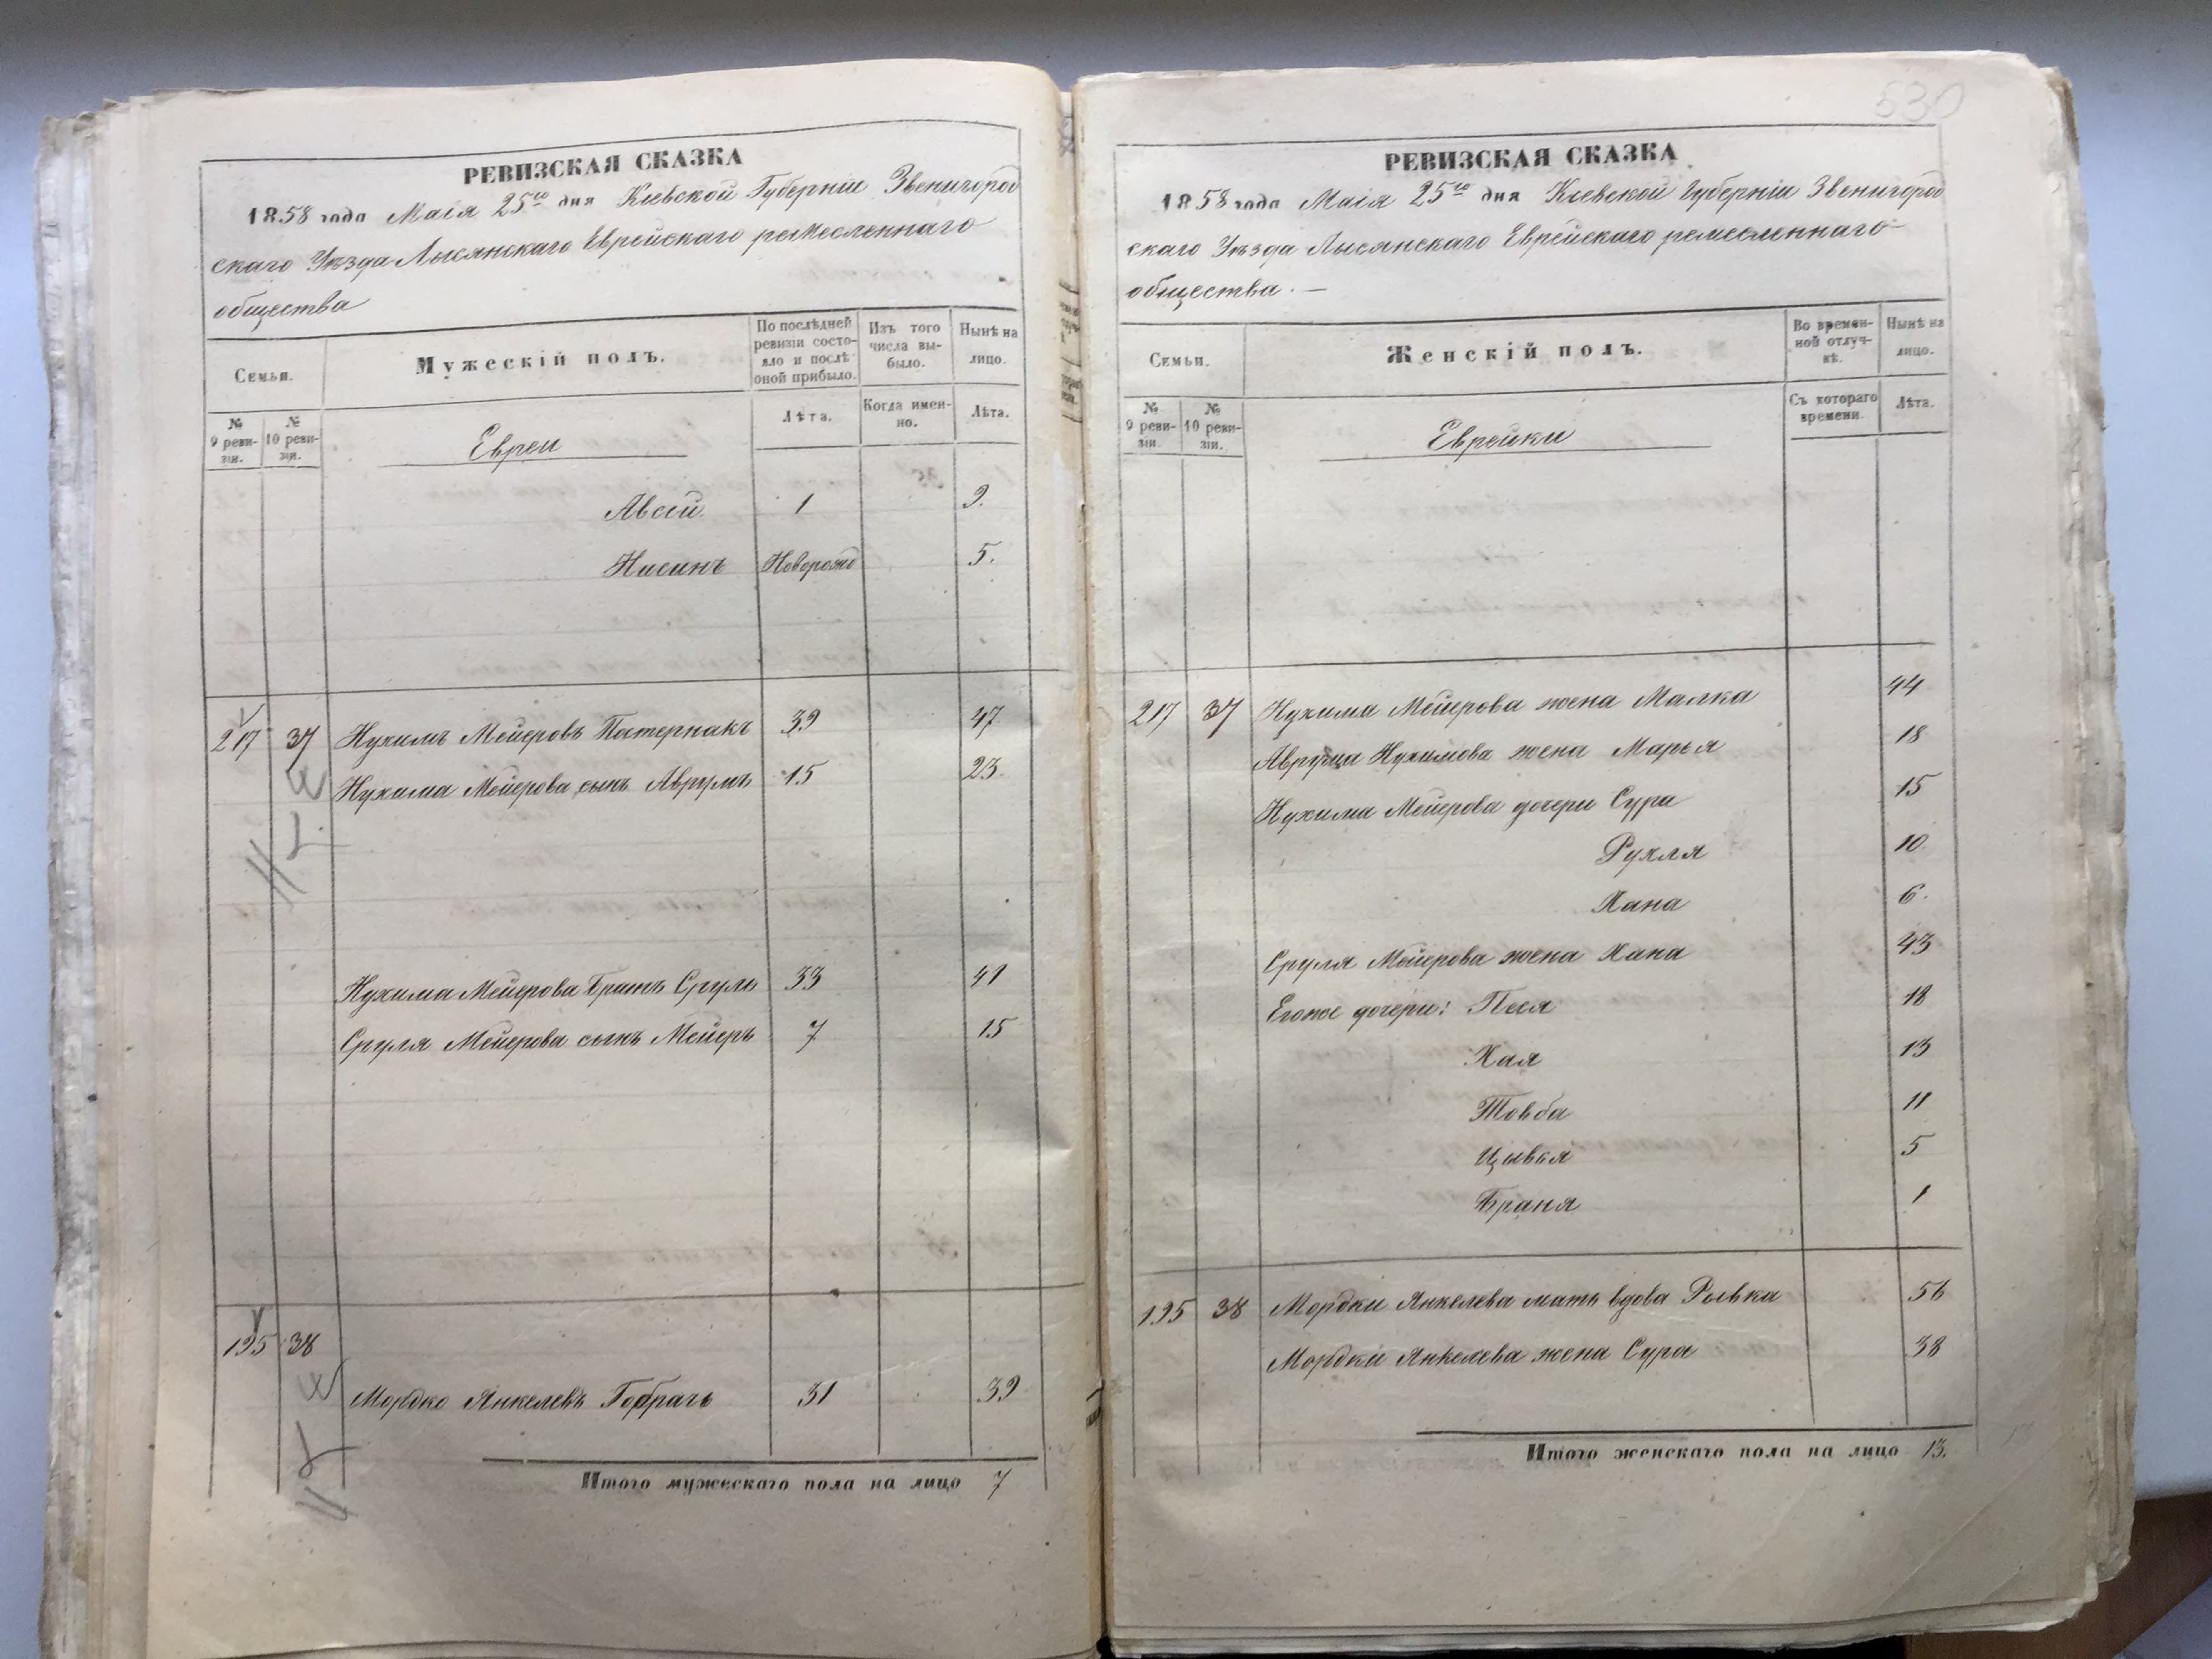 РЕВИЗСКАЯ СКАЗКА
1858 года Маія 25го дня Кіевской Губерніи Звенигород
скаго Уѣзда Лысянскаго Еврейскаго ремесленнаго
общества
Семьи.
Мужескій полъ.
По послѣдней ревизіи состояло и послѣ оной прибыло.
Изъ того числа выбыло.
Нынѣ на лицо.
№ 9 ревизіи.
№ 10 ревизіи.
Евреи
Лѣта.
Когда именно.
Лѣта.
Авсѣй 1 9.
Нисинъ Новорожд 5.
217 37 Нухимъ Мейеровъ Пастернакъ 39 47
Нухима Мейерова сынъ Аврумъ 15 23.
Нухима Мейерова братъ Сруль 33 41
Сруля Мейерова сынъ Мейеръ 7 15
195 38
Мордко Янкелевъ Горбачъ 31 39
Итого мужескаго пола на лицо 7
530
РЕВИЗСКАЯ СКАЗКА
1858 года Маія 25го дня Кіевской Губерніи Звенигород
скаго Уѣзда Лысянскаго Еврейскаго ремесленнаго
общества. —
Семьи.
Женскій полъ.
Во временной отлучкѣ.
Нынѣ на лицо.
№ 9 ревизіи.
№ 10 ревизіи.
Еврейки
Съ котораго времени.
Лѣта.
217 37 Нухима Мейерова жена Малка 44
Аврума Нухимова жена Марья 18
Нухима Мейерова дочери Сура 15
Рухля 10
Хана 6.
Сруля Мейерова жена Хана 43
Егоже дочери: Песя 18
Хая 13
Товба 11
Цывья 5
Браня 1
195 38 Мордки Янкелева мать вдова Рывка 56
Мордки Янкелева жена Сура 38
Итого женскаго пола на лицо 13.